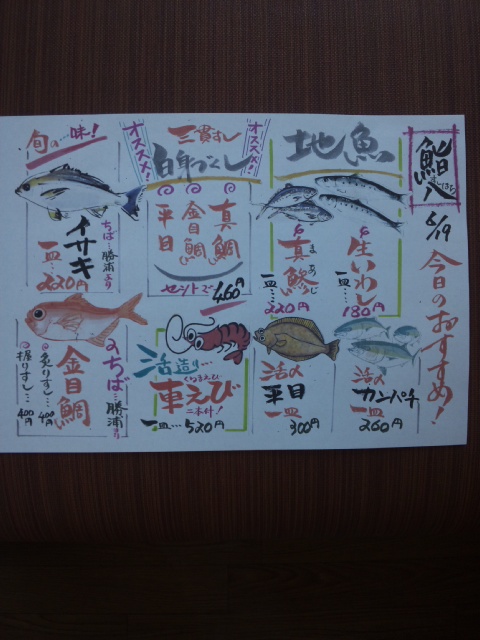 鮨八
6/19
今日のおすすめ！
地魚
生いわし
一皿…180円
真鯵
まあじ
一皿…220円
オススメ！
三貫すし
白身づくし
オススメ！
真鯛
金目鯛
平目
セットで460円
旬の…味！
イサキ
ちば…勝浦より
一皿…220円
活〆
カンパチ
一皿
260円
活〆
平目
一皿
300円
活造り…
くるまえび
車えび
二本付！
一皿…520円
ちば…勝浦より
金目鯛
炙りすし…400円
握りすし…400円